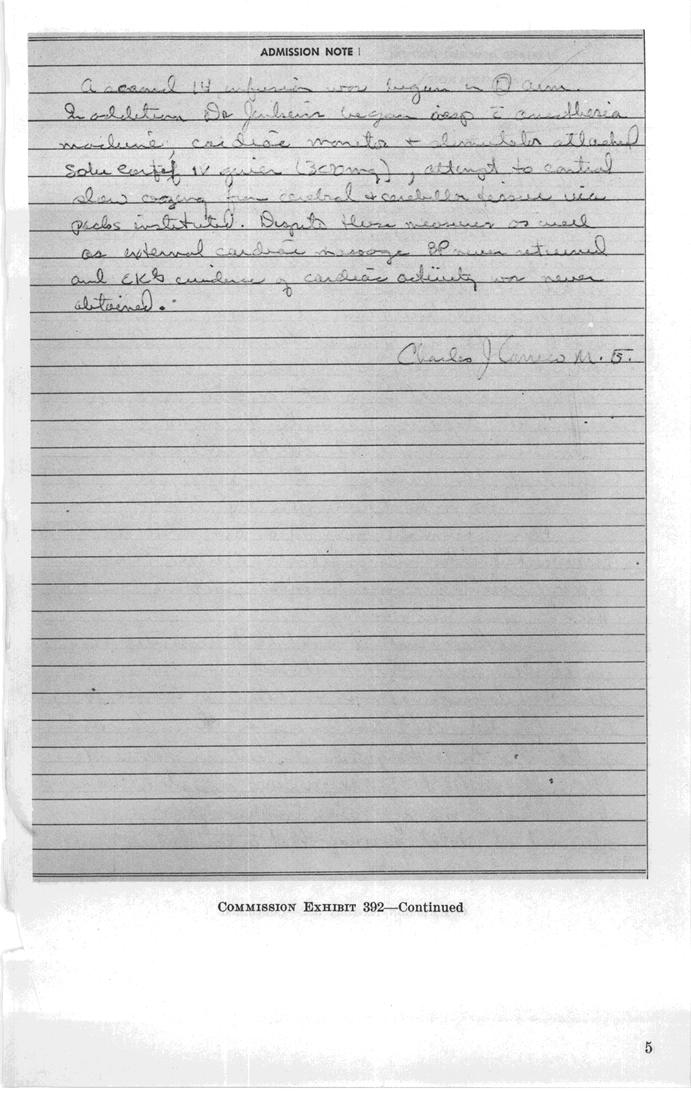 ADMISSION NOTE
A second IV infusion was begun in arm.
In addition Dr Jenkins began resp c̄ anesthesia
machine, cardiac monitor + stimulator attached
Solu Cortef IV given (300mg), attempt to control
slow oozing from cerebral + cerebellar tissue via
packs instituted. Despite these measures as well
as external cardiac massage BP never returned
and EKG evidence of cardiac activity was never
obtained.
Charles J Carrico M.D.
COMMISSION EXHIBIT 392—Continued
5